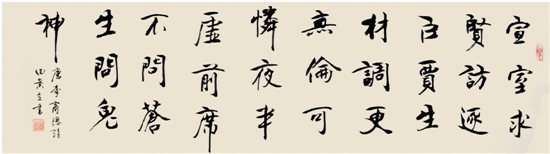 宣室求
賢訪逐
臣賈生
材調更
無倫可
憐夜半
虛前席
不問蒼
生問鬼
神
唐李商隱詩
田 書